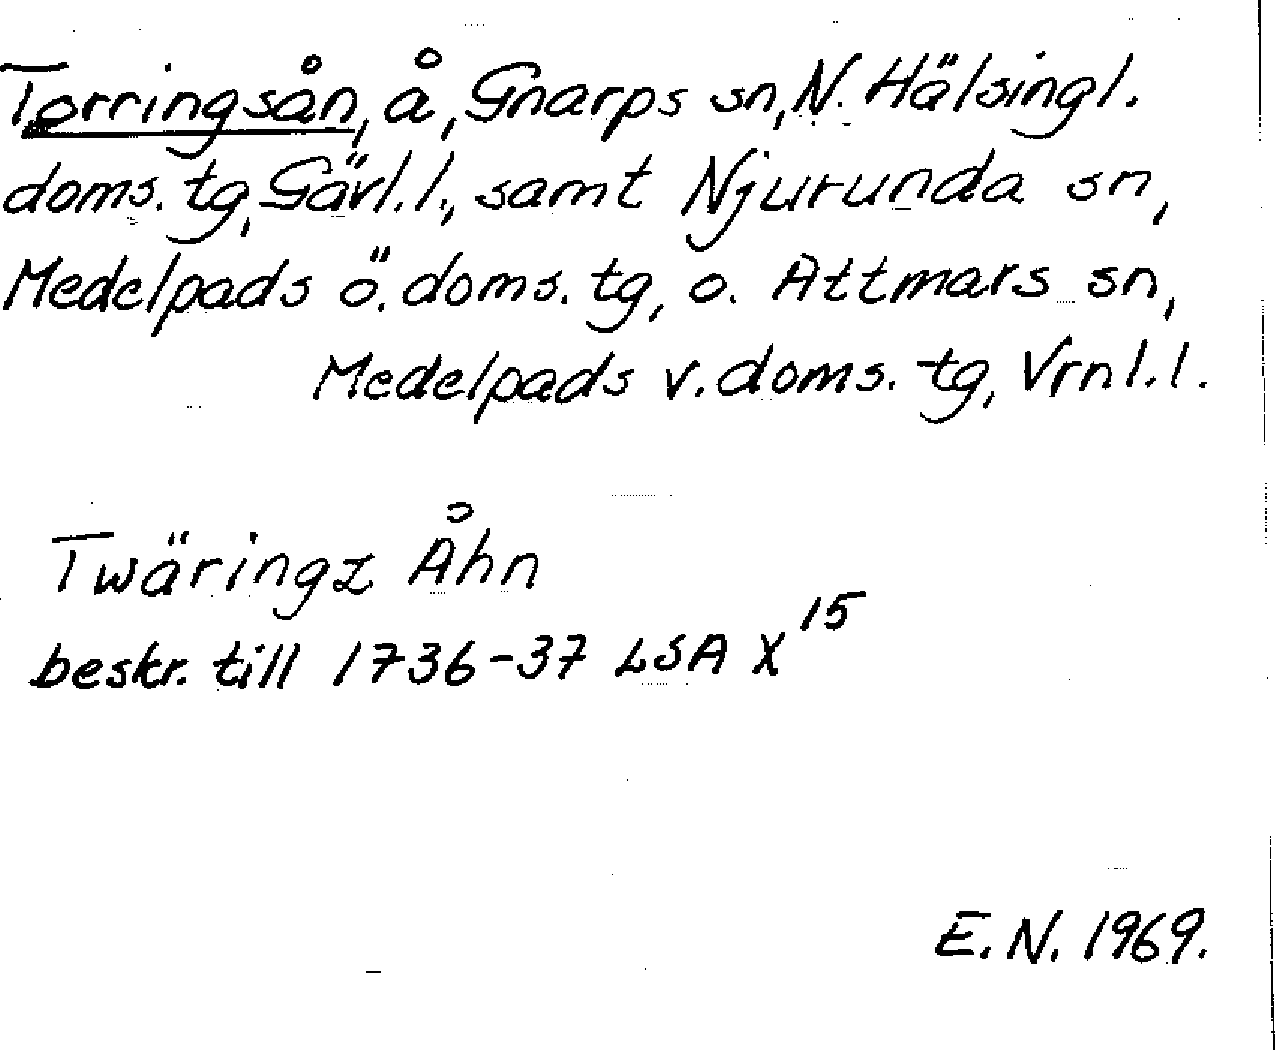 Torringsån, å, Gnarps sn, N. Hälsingl.
doms. tg, Gävl.l., samt Njurunda sn,
Medelpads ö. doms. tg, o. Attmars sn,
Medelpads v. doms. tg, Vrnl.l.
Twäringz Åhn
beskr. till 1736-37 LSA X¹⁵
E.N. 1969.